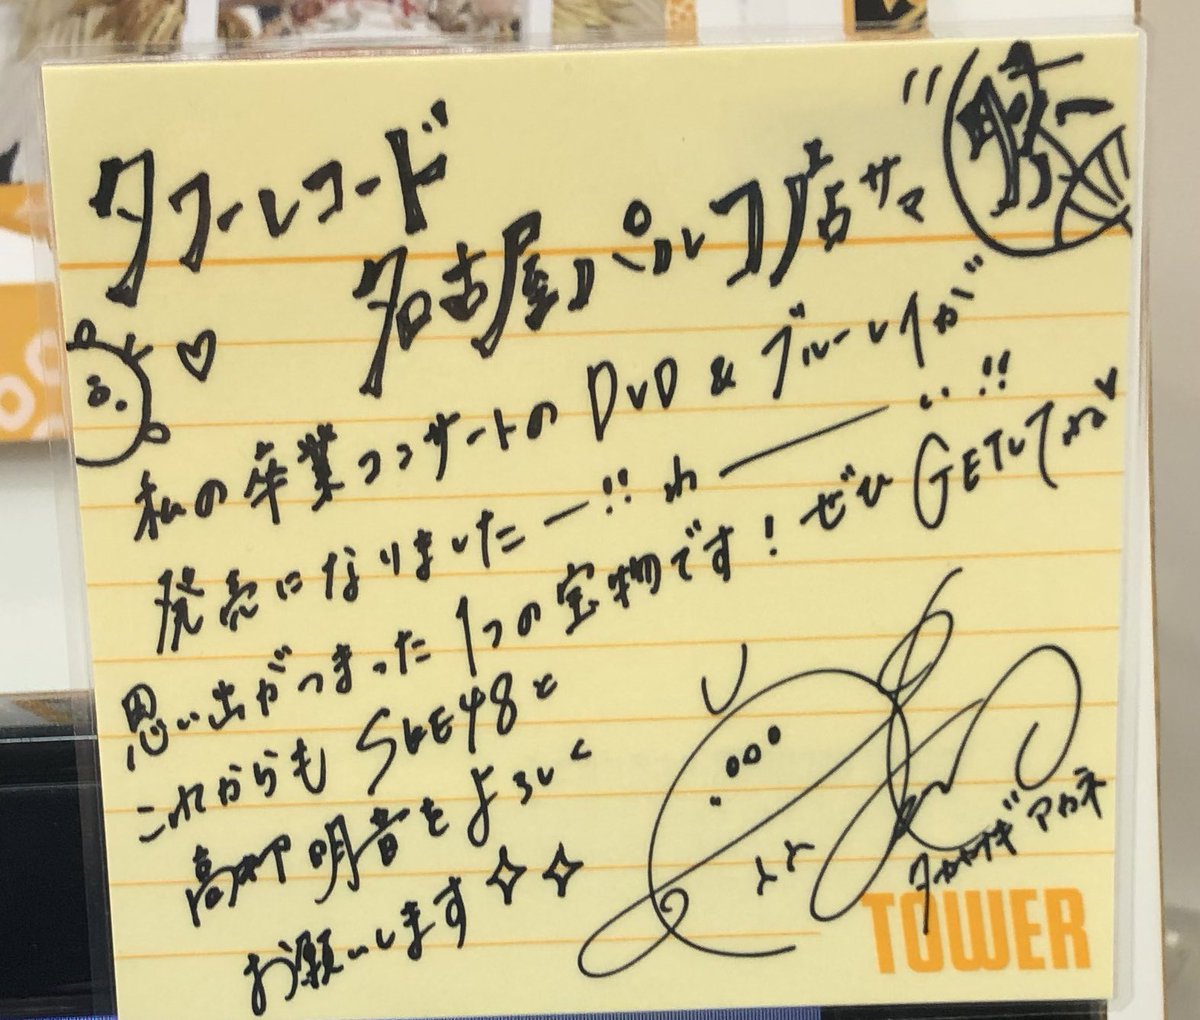 タワーレコード
名古屋パルコ店サマ
私の卒業コンサートのDVD&ブルーレイが
発売になりましたー!!わーーい!!
思い出がつまった1つの宝物です!ぜひGETしてね♥
これからもSKE48と
高柳明音をよろしく
お願いします
タカヤナギアカネ
TOWER